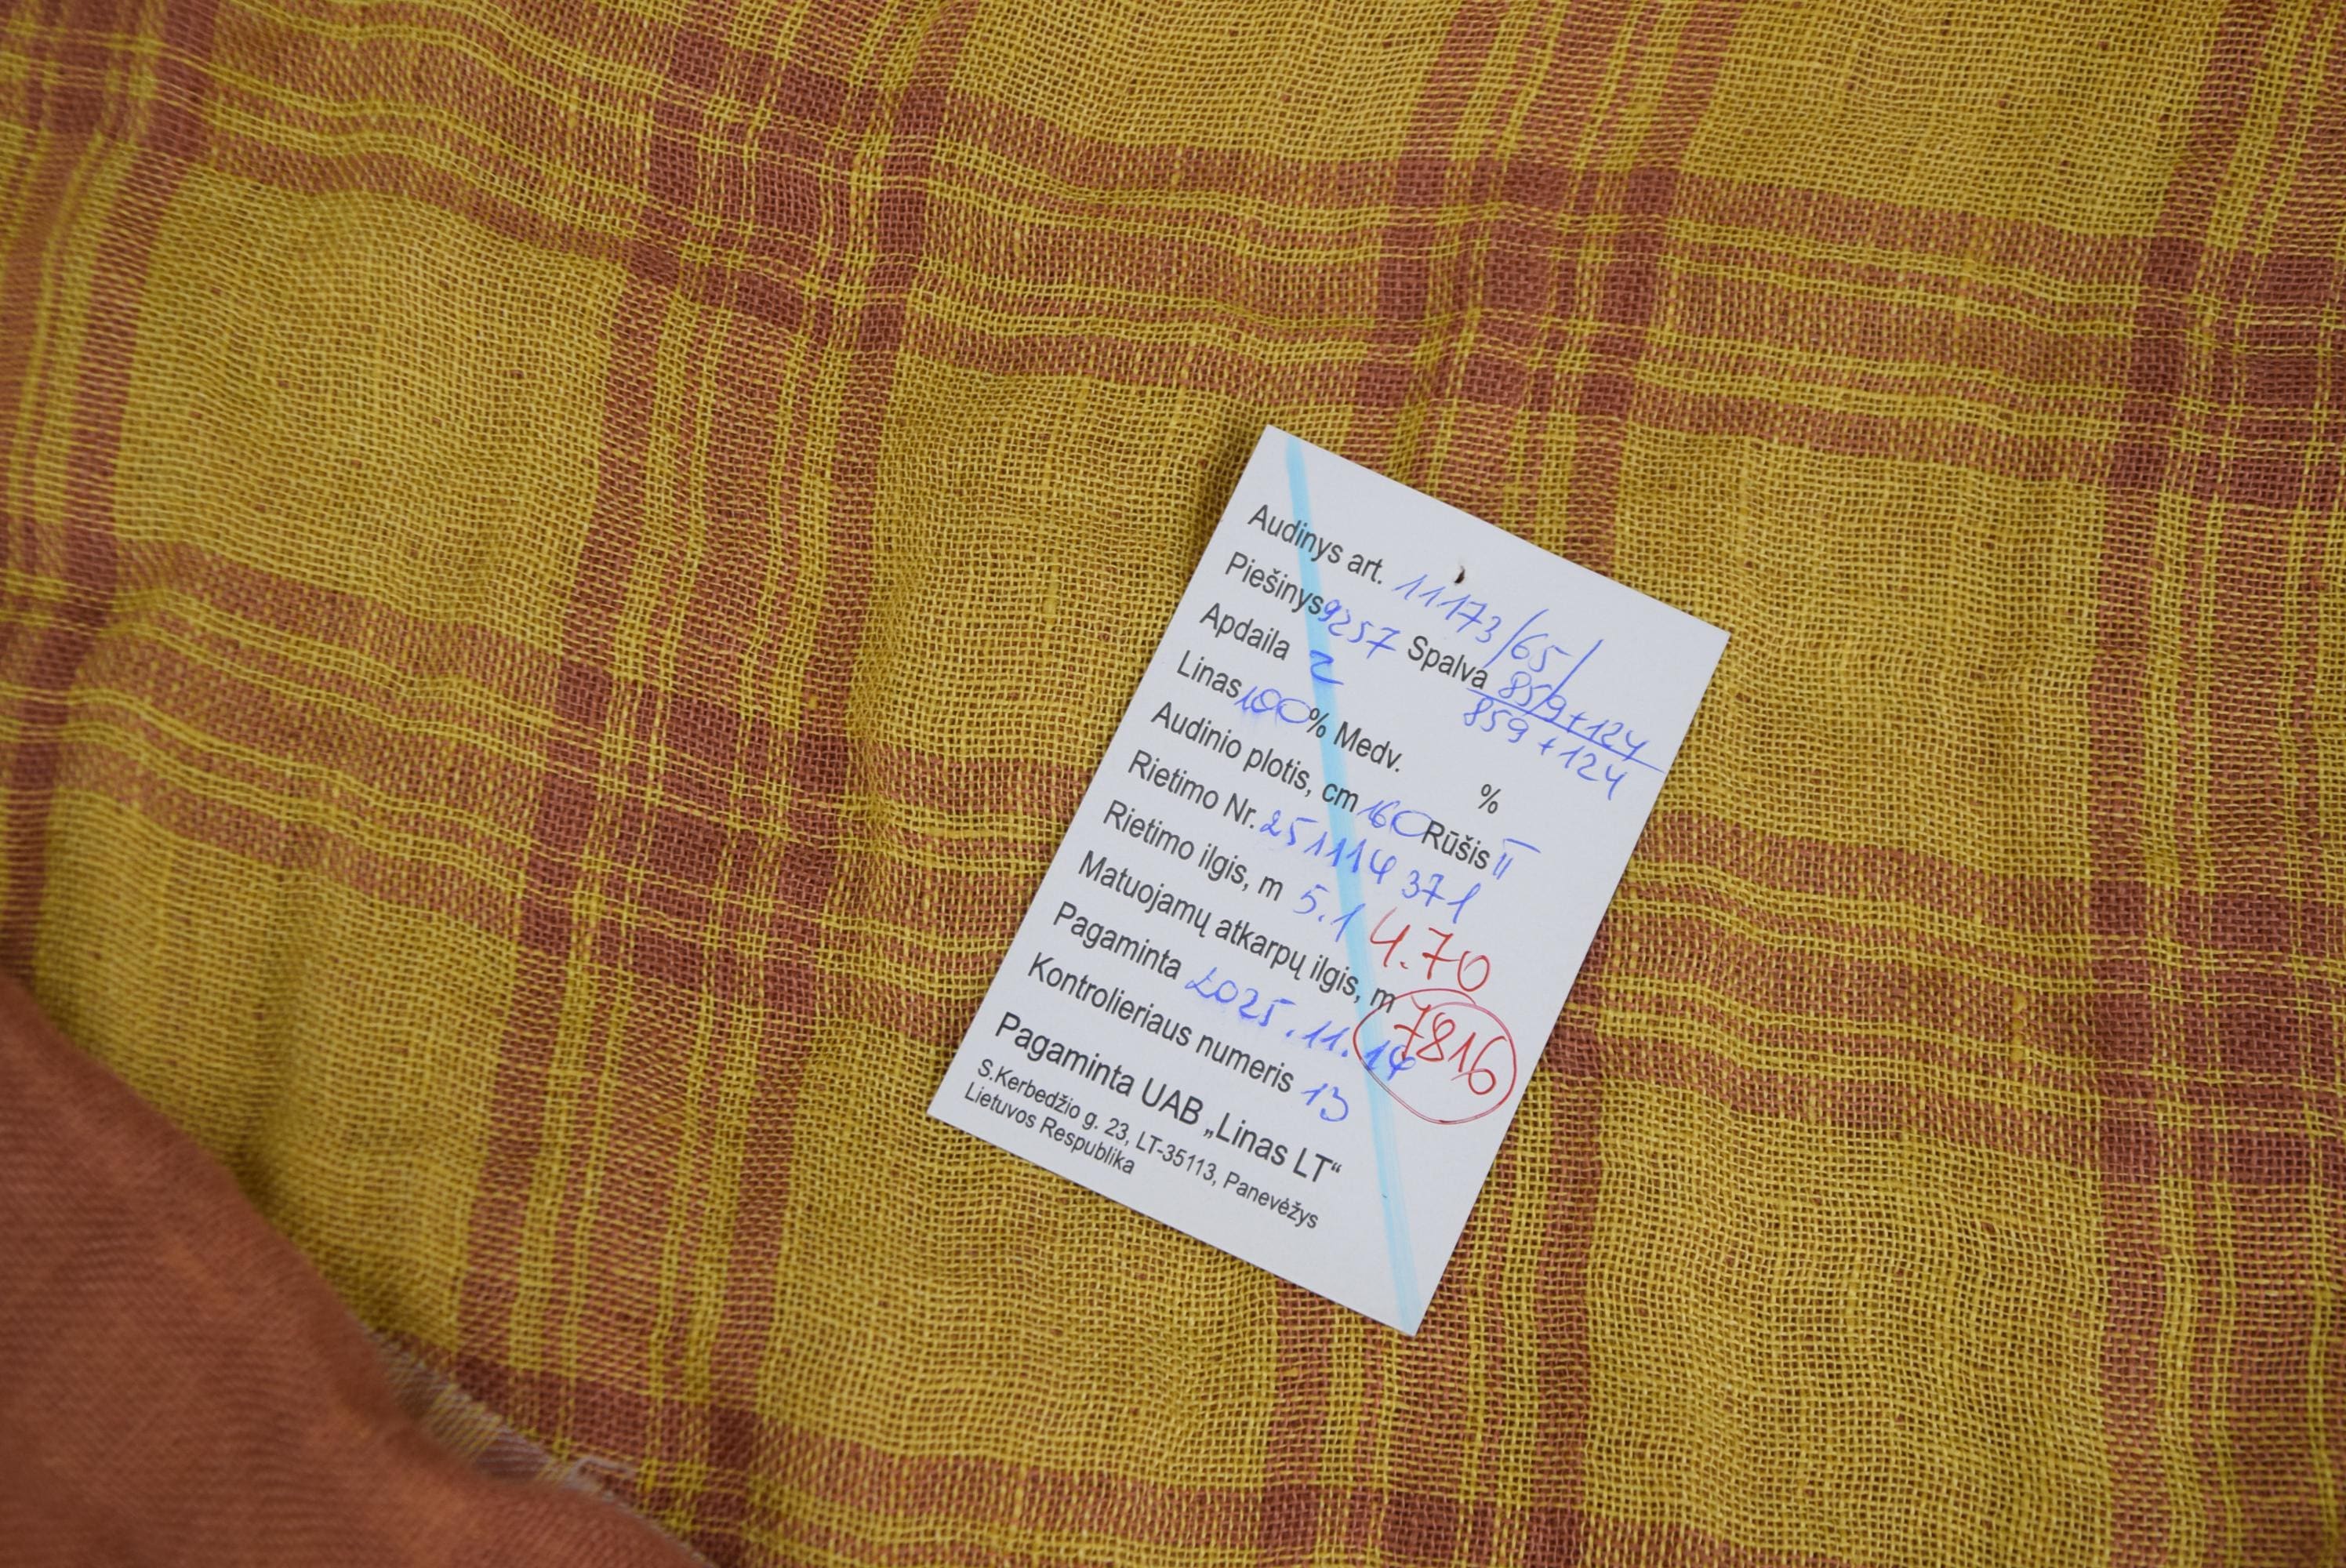 Audinys art. 11173/65/
Piešinys 9257 Spalva 859+124
859+124
Apdaila 2
Linas 100% Medv. %
Audinio plotis, cm 160 Rūšis II
Rietimo Nr. 251114 371
Rietimo ilgis, m 5.1 4.70
Matuojamų atkarpų ilgis, m 7816
Pagaminta 2025.11.14
Kontrolieriaus numeris 13
Pagaminta UAB „Linas LT“
S.Kerbedžio g. 23, LT-35113, Panevėžys
Lietuvos Respublika